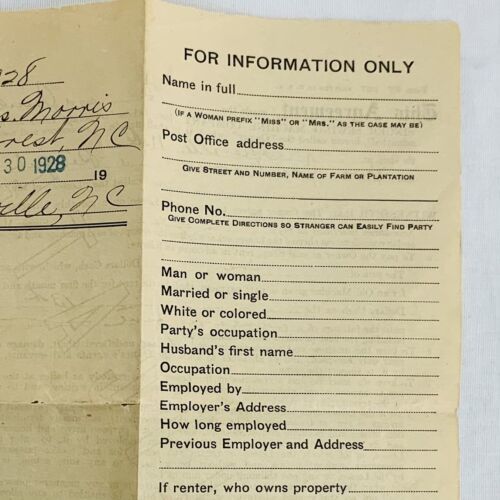 928
s. Morris
rrest, NC
30 1928
19
ville, NC
FOR INFORMATION ONLY
Name in full
(IF A WOMAN PREFIX "MISS" OR "MRS." AS THE CASE MAY BE)
Post Office address
GIVE STREET AND NUMBER, NAME OF FARM OR PLANTATION
Phone No.
GIVE COMPLETE DIRECTIONS SO STRANGER CAN EASILY FIND PARTY
Man or woman
Married or single
White or colored
Party's occupation
Husband's first name
Occupation
Employed by
Employer's Address
How long employed
Previous Employer and Address
If renter, who owns property